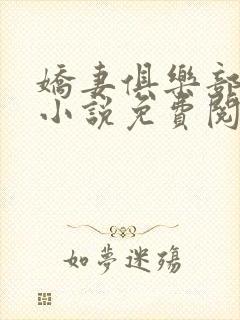 嬌妻俱樂部
小說免費閱
如夢迷殤